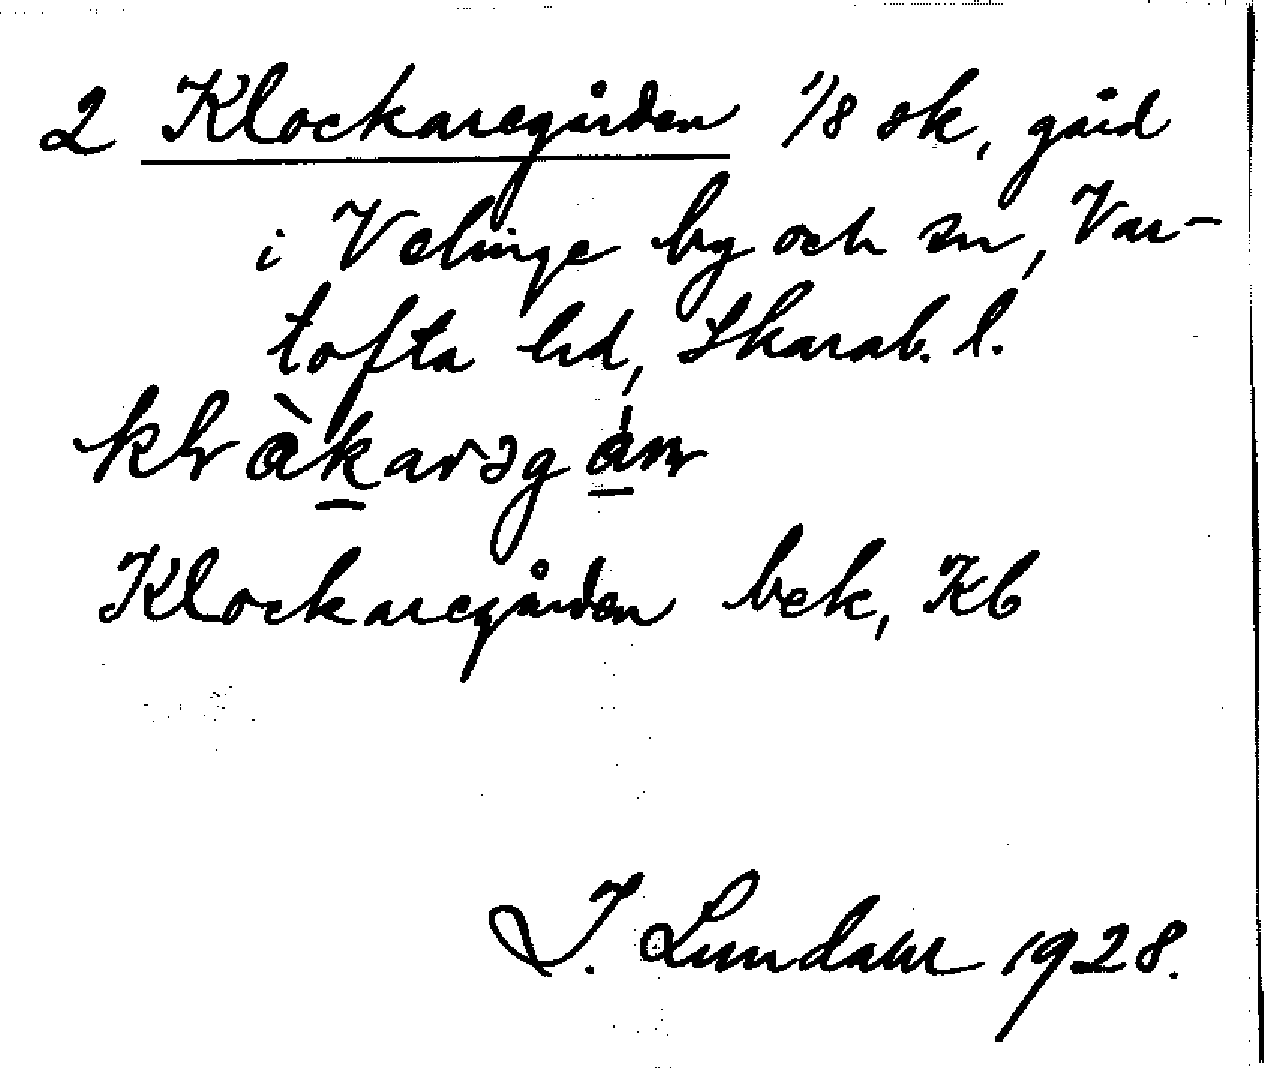 2 Klockaregården 1/8 sk, gård
i Velinge by och sn, Var-
tofta hd, Skarab. l.
Klockaregården bek, Kb
I. Lundahl 1928.